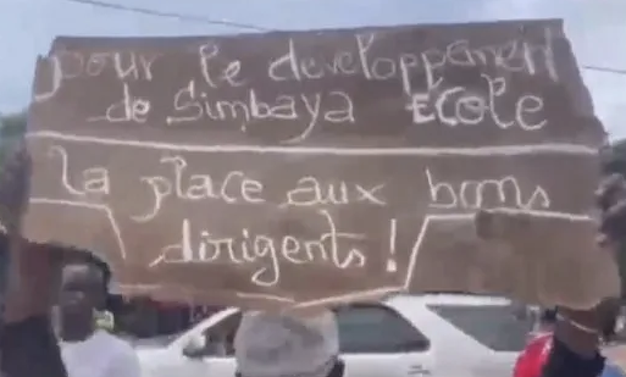 pour le developpement
de Simbaya Ecole
la place aux bons
dirigents !